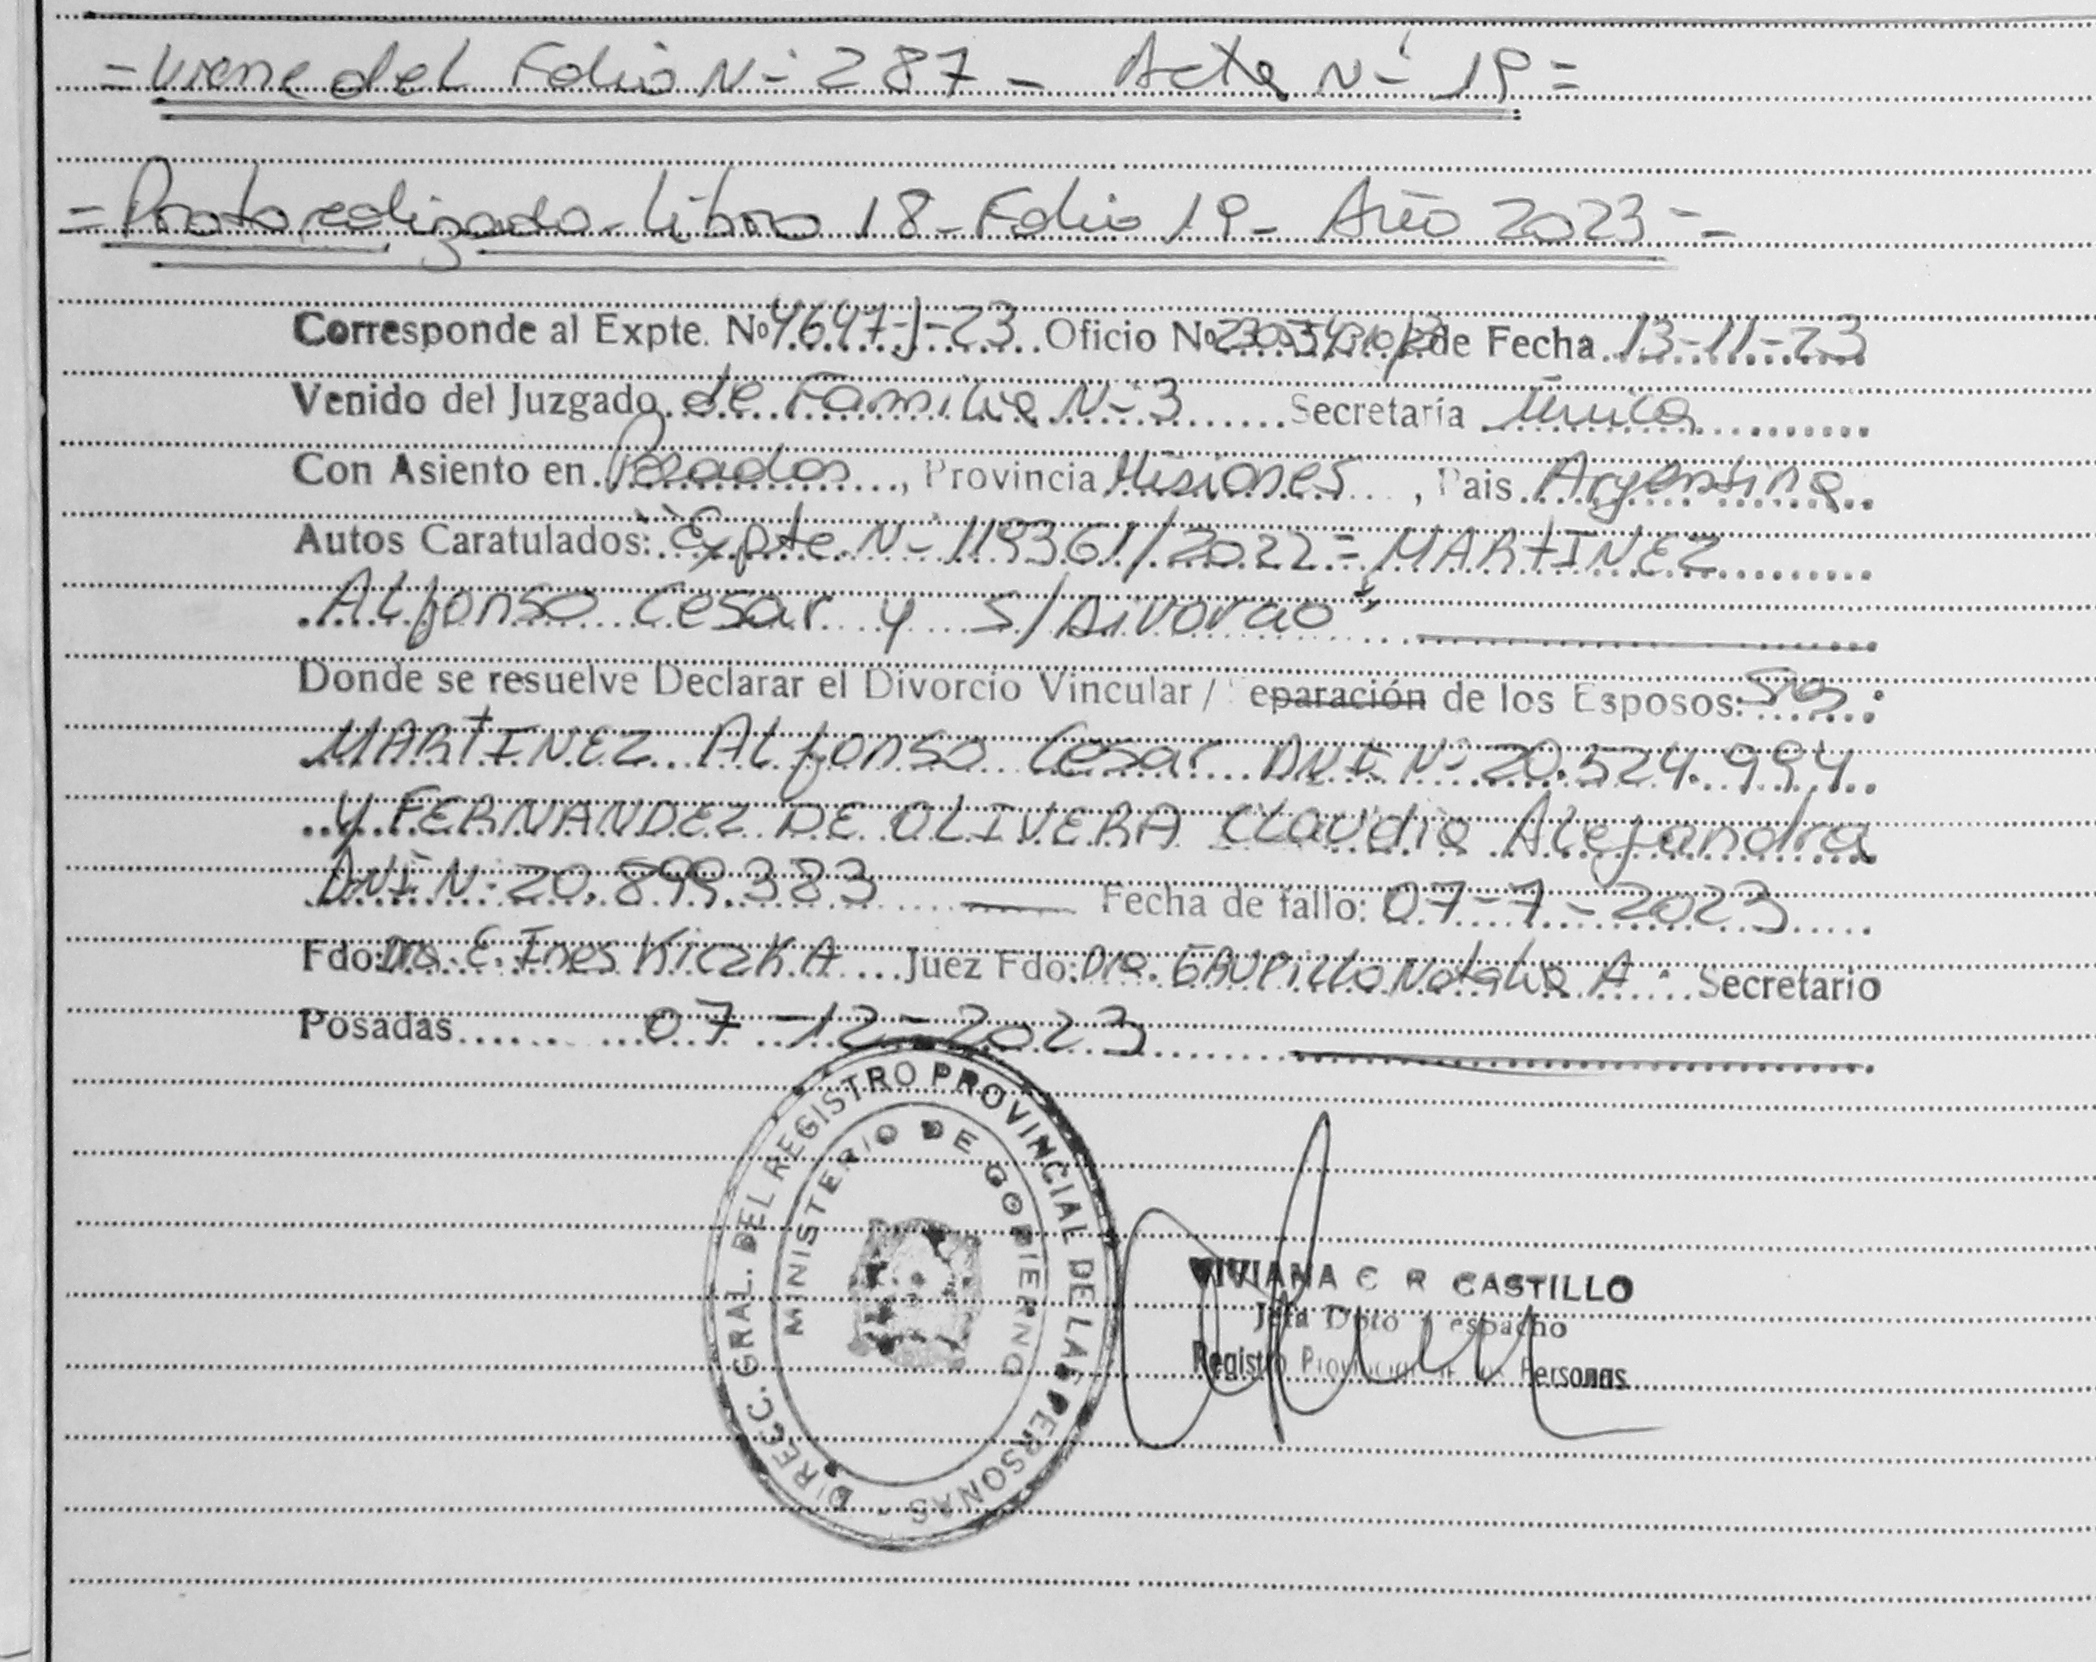 = Viene del Folio N- 287 - Acta N- 19 =
= Protocolizado - Libro 18 - Folio 19 - Año 2023 =
Corresponde al Expte. Nº 4647-J-23 Oficio Nº de Fecha 13-11-23
Venido del Juzgado de Familia N- 3 Secretaría Única
Con Asiento en Posadas, Provincia Misiones, Pais Argentina
Autos Caratulados: "Expte N- 119361/2022 = MARTINEZ
Alfonso Cesar y S/Divorcio"
Donde se resuelve Declarar el Divorcio Vincular / Separación de los Esposos: Sres.
MARTINEZ Alfonso Cesar DNI N- 20.524.994
y FERNANDEZ DE OLIVERA Claudia Alejandra
DNI N- 20.899.383 Fecha de fallo: 07-7-2023
Fdo: Dra. E. Ines KiczkA Juez Fdo: Dra. Natalia A. Secretario
Posadas 07-12-2023
DIRECC. GRAL. DEL REGISTRO PROVINCIAL DE LAS PERSONAS -
MINISTERIO DE GOBIERNO
VIVIANA C R CASTILLO
Jefa Dpto Despacho
Registro Provincial de las Personas